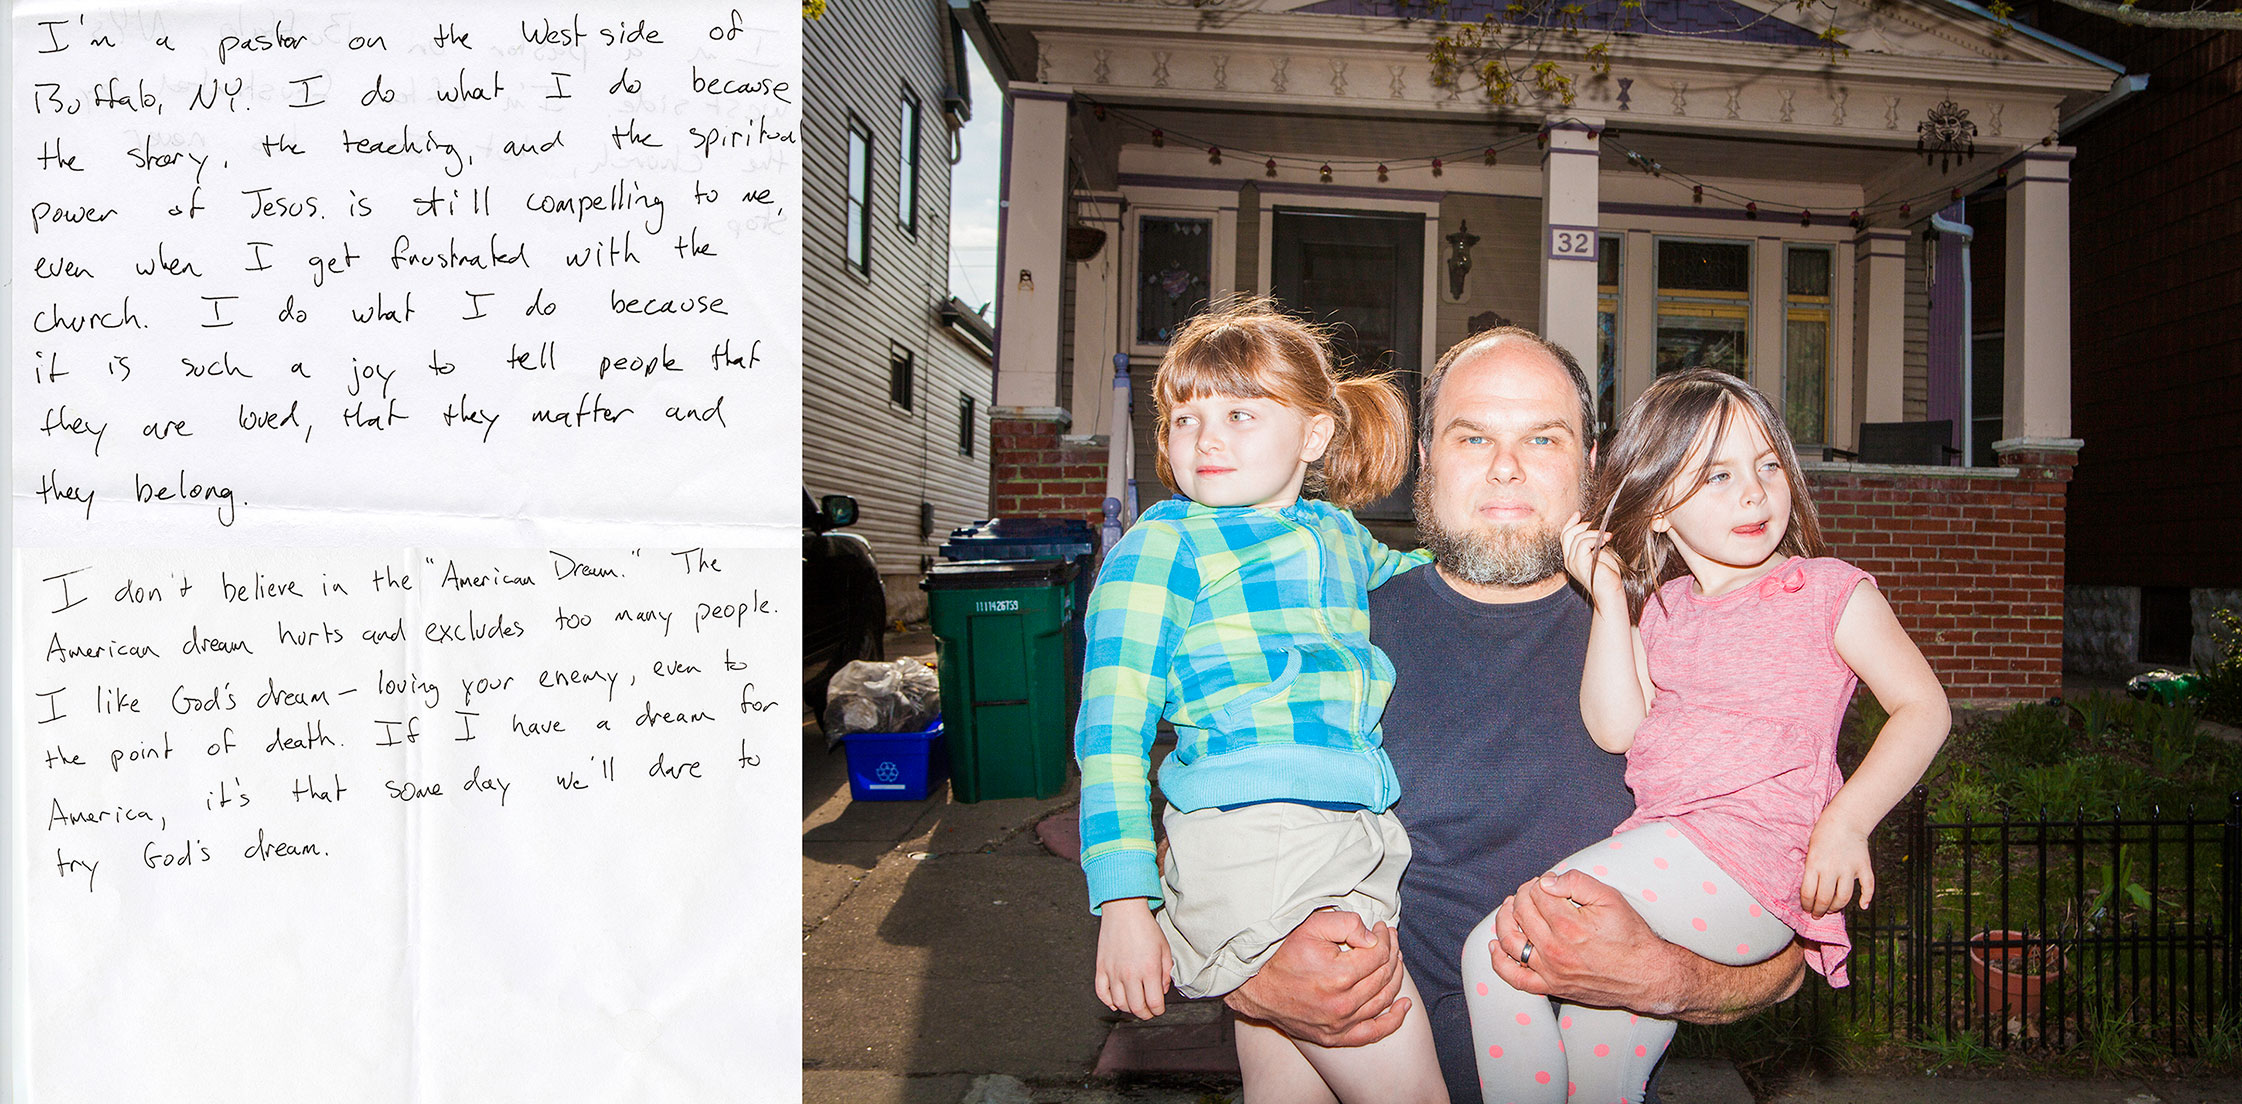 I'm a pastor on the West side of
Buffalo, NY. I do what I do because
the story, the teaching, and the spiritual
power of Jesus. is still compelling to me,
even when I get frustrated with the
church. I do what I do because
it is such a joy to tell people that
they are loved, that they matter and
they belong.
I don't believe in the "American Dream." The
American dream hurts and excludes too many people.
I like God's dream – loving your enemy, even to
the point of death. If I have a dream for
America, it's that some day we'll dare to
try God's dream.
32